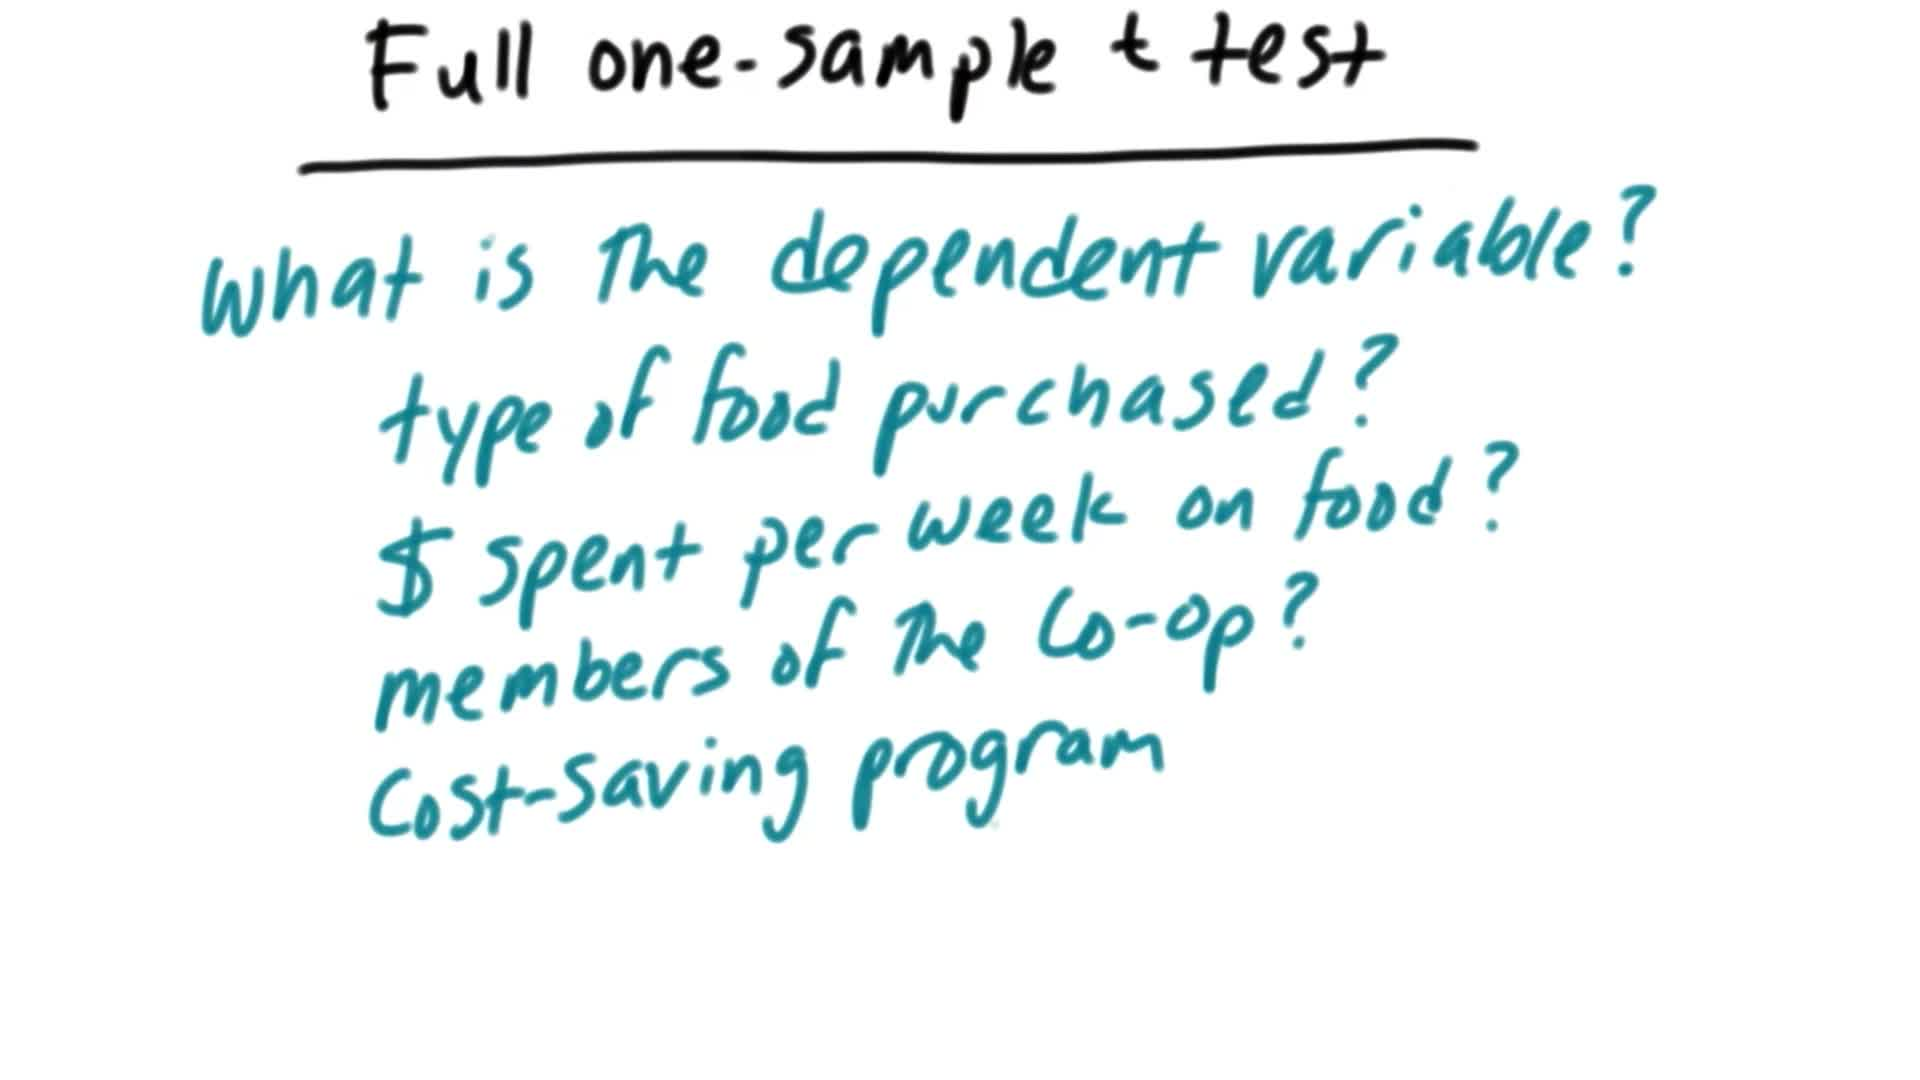 Full one-sample t test
What is the dependent variable?
type of food purchased?
$ spent per week on food?
members of the Co-op?
Cost-saving program